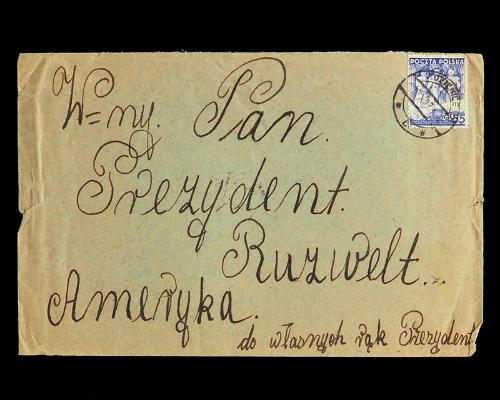 POCZTA POLSKA
55
W=ny. Pan.
Prezydent.
Ruzwelt..
Ameryka.
do własnych rąk Prezydent